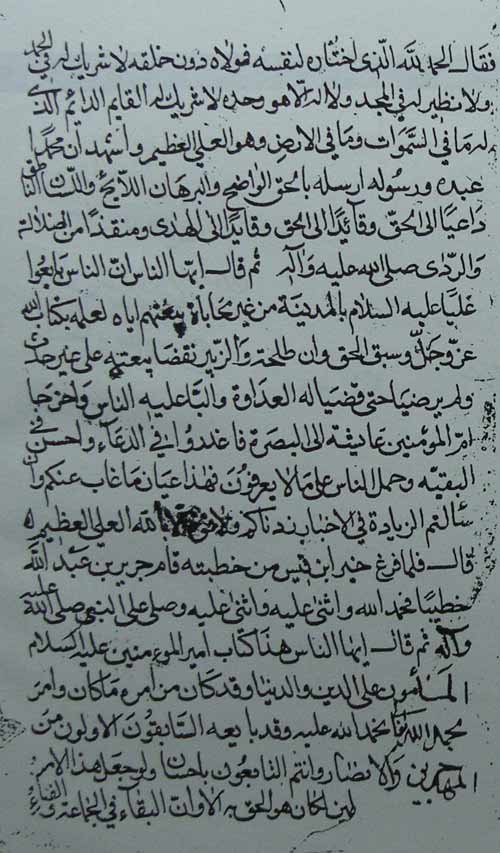 ١
فقال الحمد لله الذي اختاره لنفسه فهولاه دون خلقه لا شريك له في الحمد
ولا نظير له في المجد ولا اله الا هو وحده لا شريك له القايم الدايم الذي
له ما في السموات وما في الارض وهو العلي العظيم واشهد ان محمدا
عبده ورسوله ارسله بالحق الواضح والبرهان اللايح واللسان الناطق
داعيا الى الحق وقآئدا الى الحق وقايدا الى الهدى ومنقذا من الضلالة
والردى صلى الله عليه وآله ثم قال ايها الناس ان الناس بايعوا
عليا عليه السلام بالمدينة من غير محاباة ببيعتهم اياه لعلمه بكتاب الله
عز وجل وسبق الحق وان طلحة والزبير نقضا بيعته على غير حدث
ولم يرضيا حتى قضيا له العداوة والبا عليه الناس واخرجا
ام المومنين عايشة الى البصرة فاغدروا في الدعآء واحسن في
البقيه وحمل الناس على ما لا يعرفون فهذا عيان ما غاب عنكم وان
سالتم الزيادة في الاخبار زدناكم ولا قوة الا بالله العلي العظيم
قال فلما فرغ خبر ابن قيس من خطبته قام جرير بن عبد الله
خطيبا فحمد الله واثنى عليه واثنى عليه وصلى على النبي صلى الله عليه
وآله ثم قال ايها الناس هذا كتاب امير المومنين عليه السلام
المامون على الدين والدنيا وقد كان من امره ما كان وامر
بحمد الله فحمد الله عليه وقد بايعه السابقون الاولون من
المهاجرين والانصار وانتم التابعون باحسان ولو جعل هذا الامر
لمن لكان هو الحق به الا وان البقآء في الجماعة والفناء